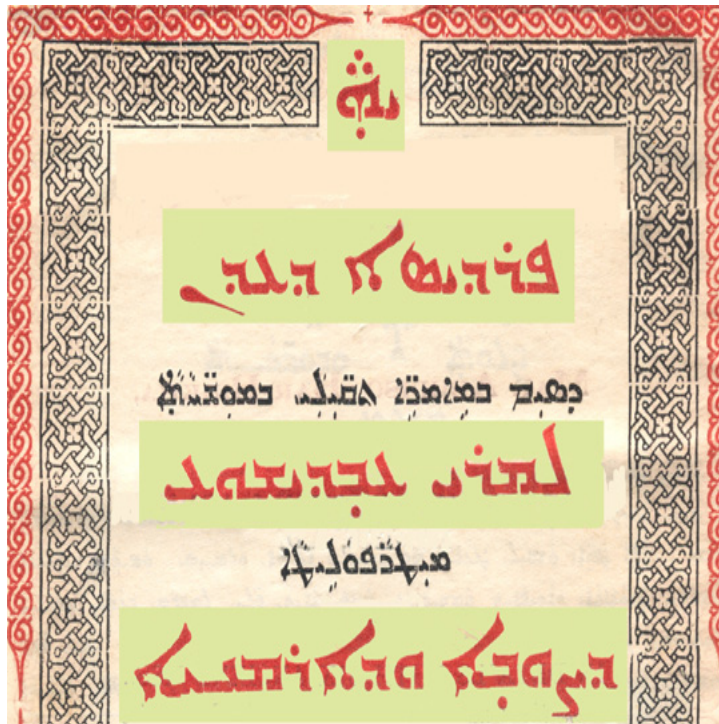 ܝܗ̈
ܦܪܕܝܣܐ ܕܥܕܢ
ܕܣܝܡ ܒܡܐܡܪ̈ܐ ܬܩܝ̈ܠܝ ܒܡܘܫܚ̈ܬܐ
ܠܡܪܝ ܥܒܕܝܫܘܥ
ܡܝܛܪܦܘܠܝܛܐ
ܕܨܘܒܐ ܘܕܐܪܡܢܝܐ